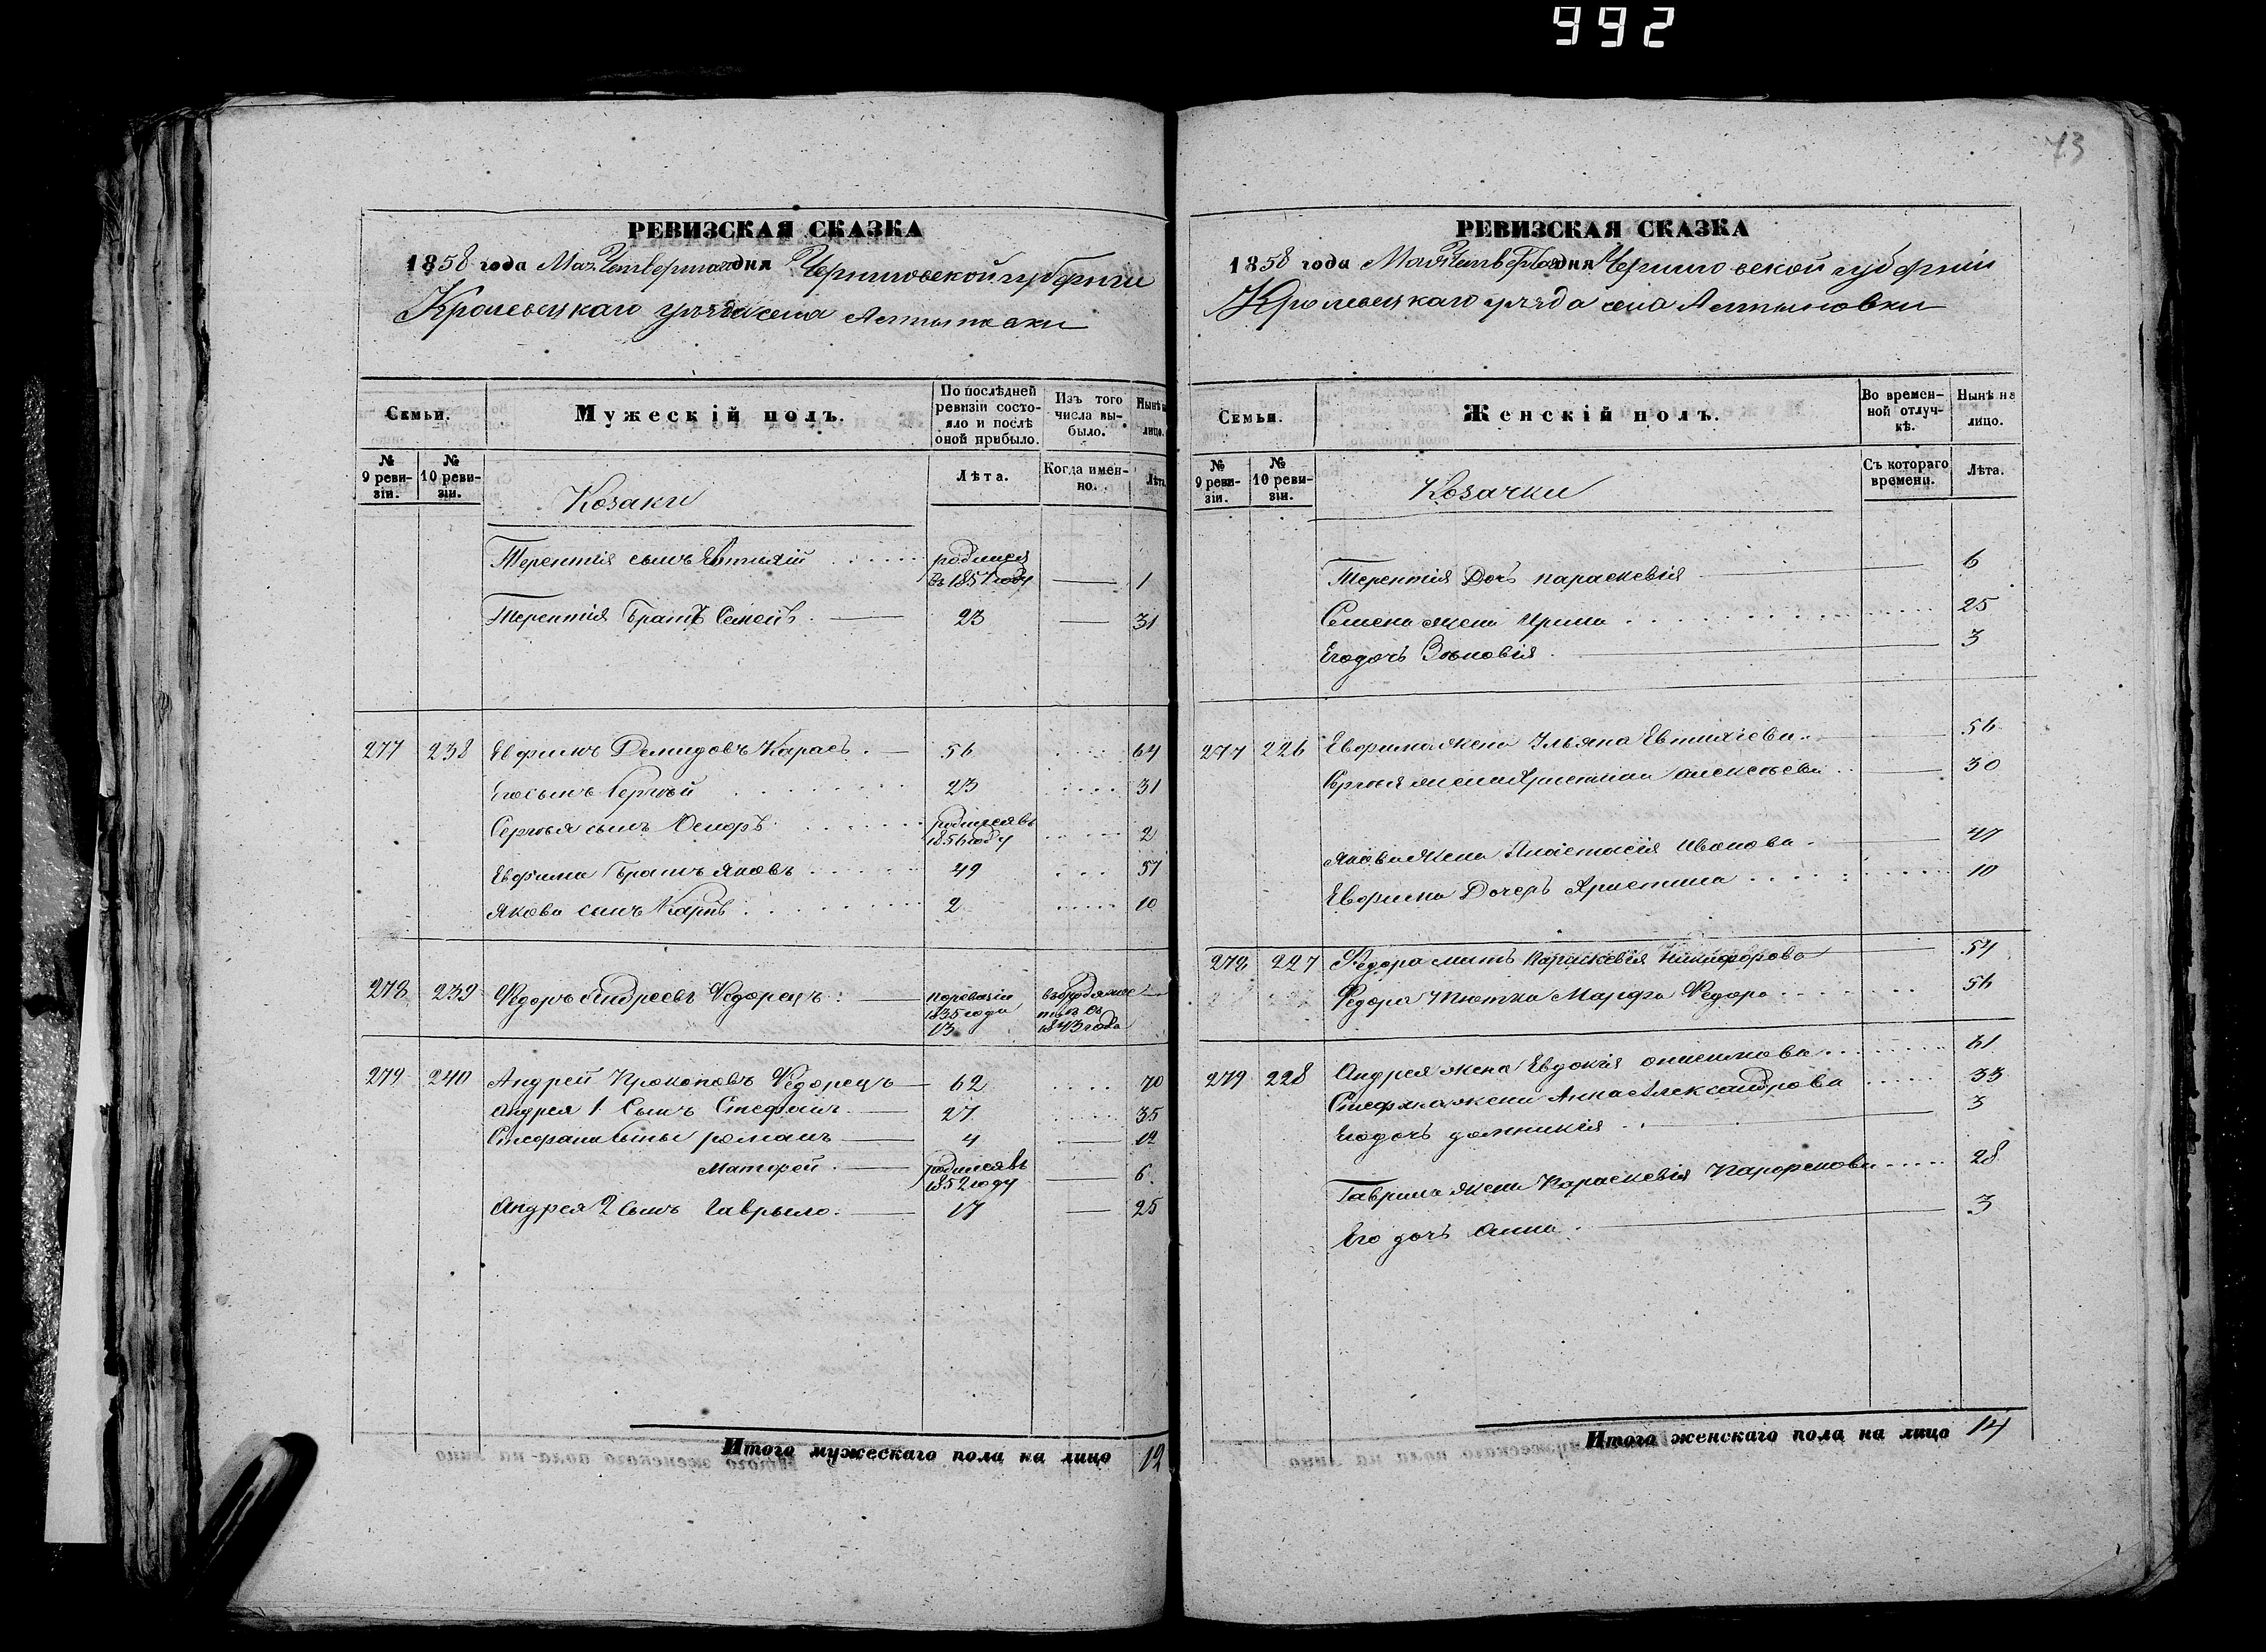 992
13
РЕВИЗСКАЯ СКАЗКА
1858 года Мая Четвертаго дня Черниговской губернии
Кролевецкаго уезда села Алтыновки
Семьи.
Мужескій полъ.
По послѣдней ревизіи состояло и послѣ оной прибыло.
Изъ того числа выбыло.
Нынѣ на лицо.
№ 9 ревизіи.
№ 10 ревизіи.
Козаки
Лѣта.
Когда именно.
Лѣта
Терентія сынъ Евтихій родился въ 1857 году 1
Терентія братъ Семенъ 23 31
277 238 Евфимъ Демидовъ Карась 56 64
Его сынъ Сергѣй 23 31
Сергѣя сынъ родился въ 1856 году 2
Евфима братъ Яковъ 49 57
Якова сынъ Карпъ 2 10
278 239 Федоръ Андреевъ Федорецъ по ревизіи 1835 года 13 1843 года
279 240 Андрей Прокоповъ Федорецъ 62 70
Андрея 1 сынъ Стефанъ 27 35
Стефана сыны романъ 4 12
Матфей родился въ 1852 году 6
Андрея 2 сынъ Гаврыло 17 25
Итого мужескаго пола на лицо 12
РЕВИЗСКАЯ СКАЗКА
1858 года Мая Четвертаго дня Черниговской губерніи
Кролевецкаго уезда села Алтыновки
Семьи.
Женскій полъ.
Во временной отлучкѣ.
Нынѣ на лицо.
№ 9 ревизіи.
№ 10 ревизіи.
Козачки
Съ котораго времени.
Лѣта.
Терентія Дочь параскевія 6
Семена жена Ирина 25
Его дочь Зѣновія 3
277 226 Евфима жена Ульяна Евтихіева 56
Сергѣя жена Христина алексѣева 30
Якова жена Анастасія Иванова 47
Евфима Дочерь Христина 10
278 227 Федора мать Параскевія Никифорова 54
Федора тютка Марфа Федоро 56
279 228 Андрея жена Евдокія онисимова 61
Стефана жена Анна Александрова 33
Его дочь домникія 3
Гаврила жена Параскевія Парфенова 28
Его дочь Анна 3
Итого женскаго пола на лицо 14